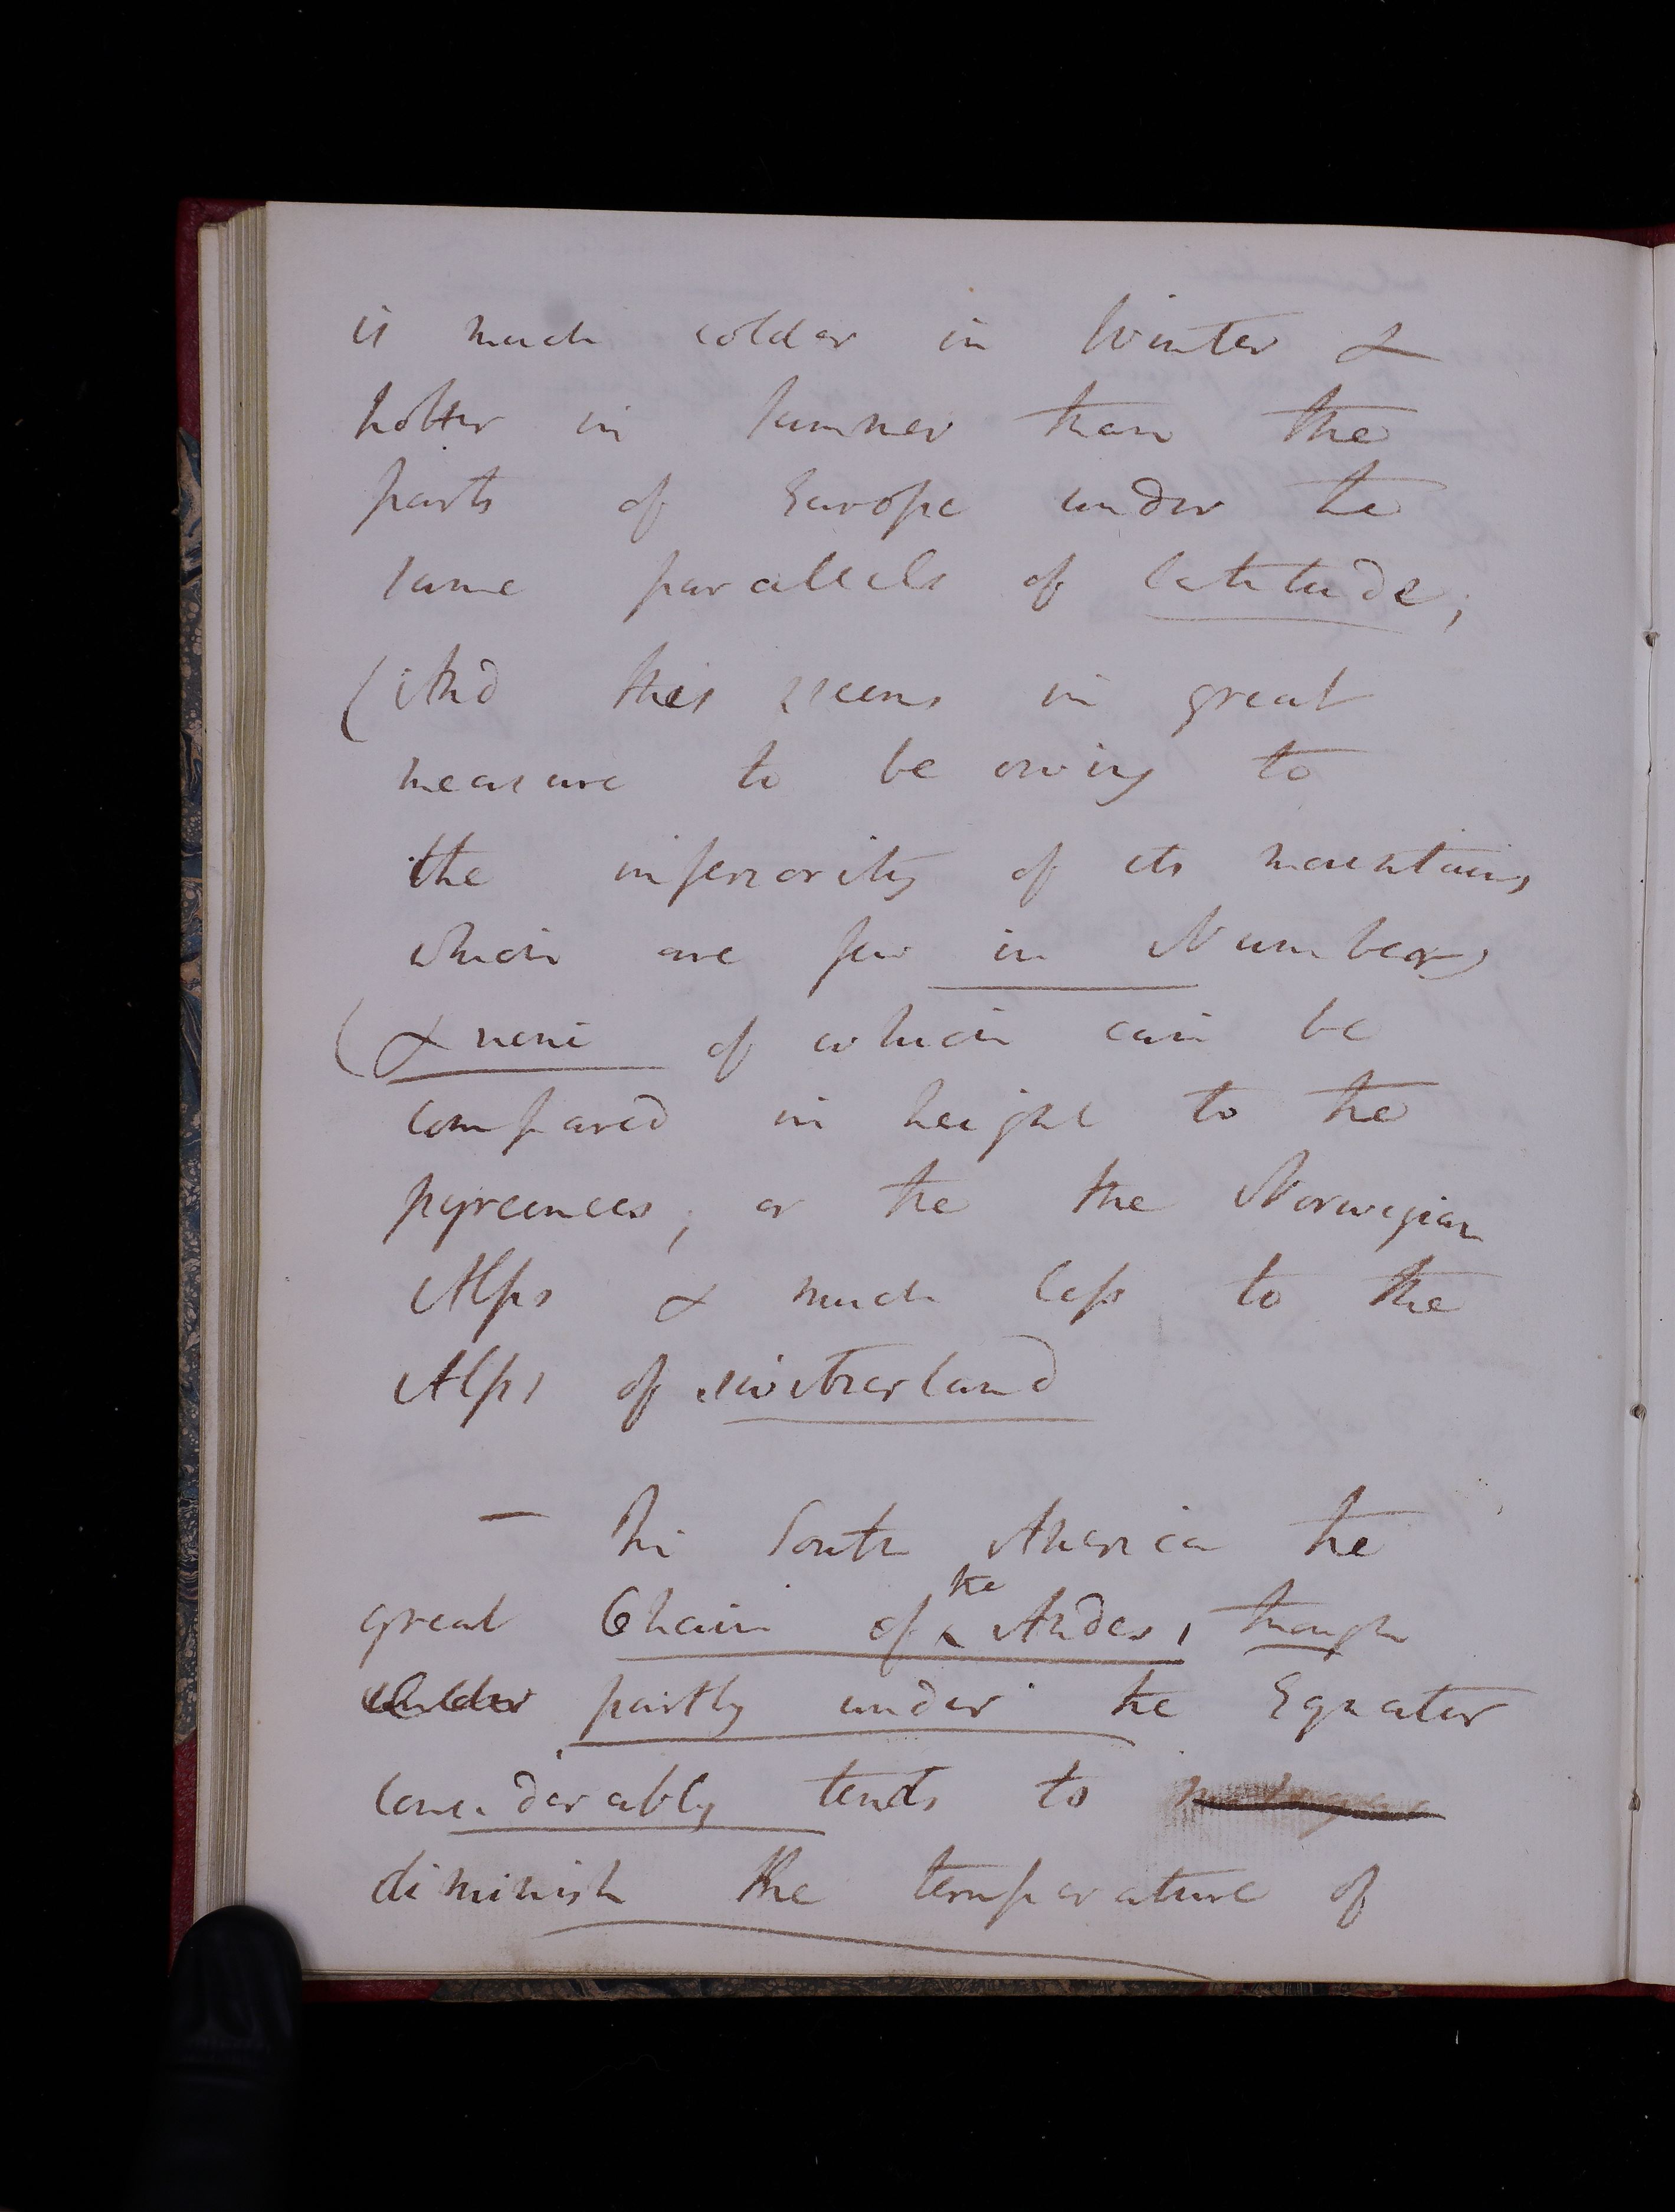 is much colder in Winter &
hotter in summer than the
parts of Europe under the
same parallels of latitude;
(And this seems in great
measure to be owing to
the inferiority of its mountains
which are few in Number)
(& none of which can be
compared in height to the
pyreenees, or the the Norwegian
Alps & much less to the
Alps of switzerland
— In South America the
great Chain of the Andes, though
under partly under the Equator
considerably tends to
diminish the temperature of